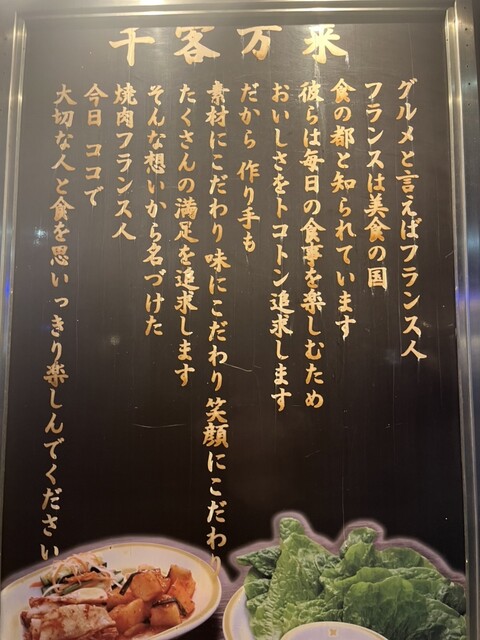 千客万来
グルメと言えばフランス人
フランスは美食の国
食の都と知られています
彼らは毎日の食事を楽しむため
おいしさをトコトン追求します
だから 作り手も
素材にこだわり 味にこだわり 笑顔にこだわり
たくさんの満足を追求します
そんな想いから名づけた
焼肉フランス人
今日 ココで
大切な人と食を思いっきり楽しんでください